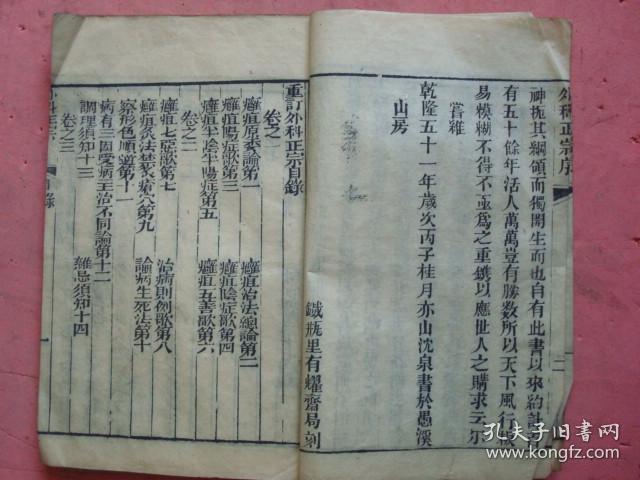 外科正宗序
神抵其綱領而獨開生而也自有此書以來約計
有五十餘年活人萬萬豈有勝數所以天下風行
易模糊不得不亟為之重鐫以應世人之購求云尔
嘗稚
乾隆五十一年歲次丙子桂月亦山沈泉書於愚溪
山房
鐵瓶里有耀齋局剞
二
重訂外科正宗目錄
卷之一
癰疽原委論第一 癰疽治法總論第二
癰疽陽症歌第三 癰疽陰症歌第四
癰疽半陰半陽症第五 癰疽五善歌第六
卷之二
癰疽七惡歌第七 治病則例歌第八
癰疽灸法第九 論病生死法第十
察形色順逆第十一
病有三因受病主治不同論第十二
調理須知十三 雜忌須知十四
卷之三
目錄
一
孔夫子旧书网
www.kongfz.com